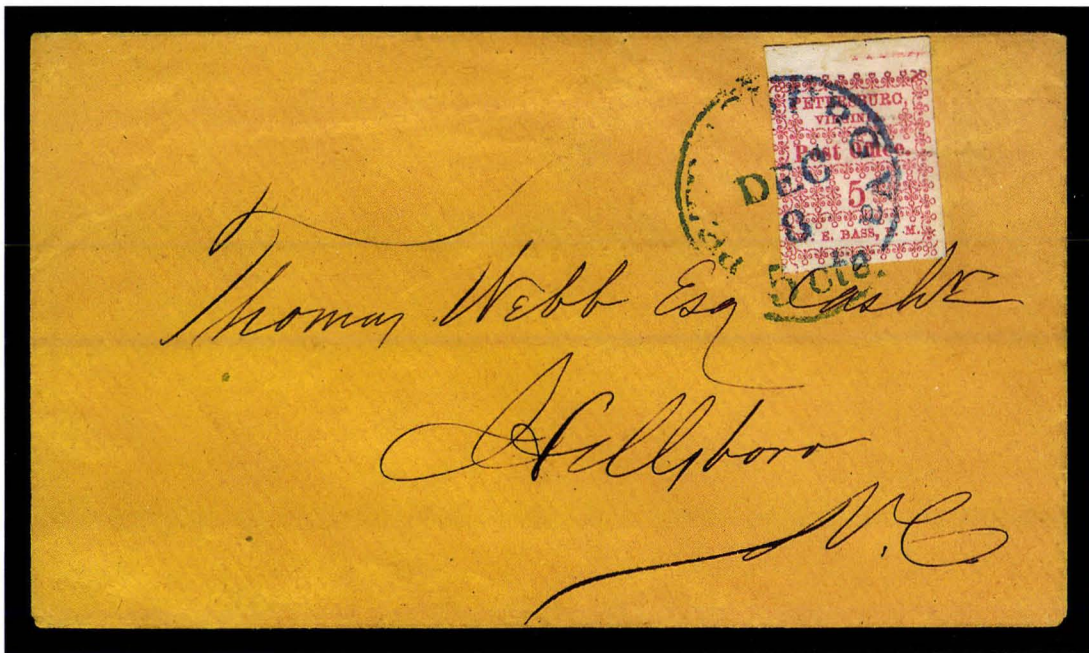 PETERSBURG,
VIRGIN
Post Office.
5
E. BASS, P. M.
DEC
8
PAID 5 cts.
Thomas Webb Esq Cashr
Hillsboro
N.C